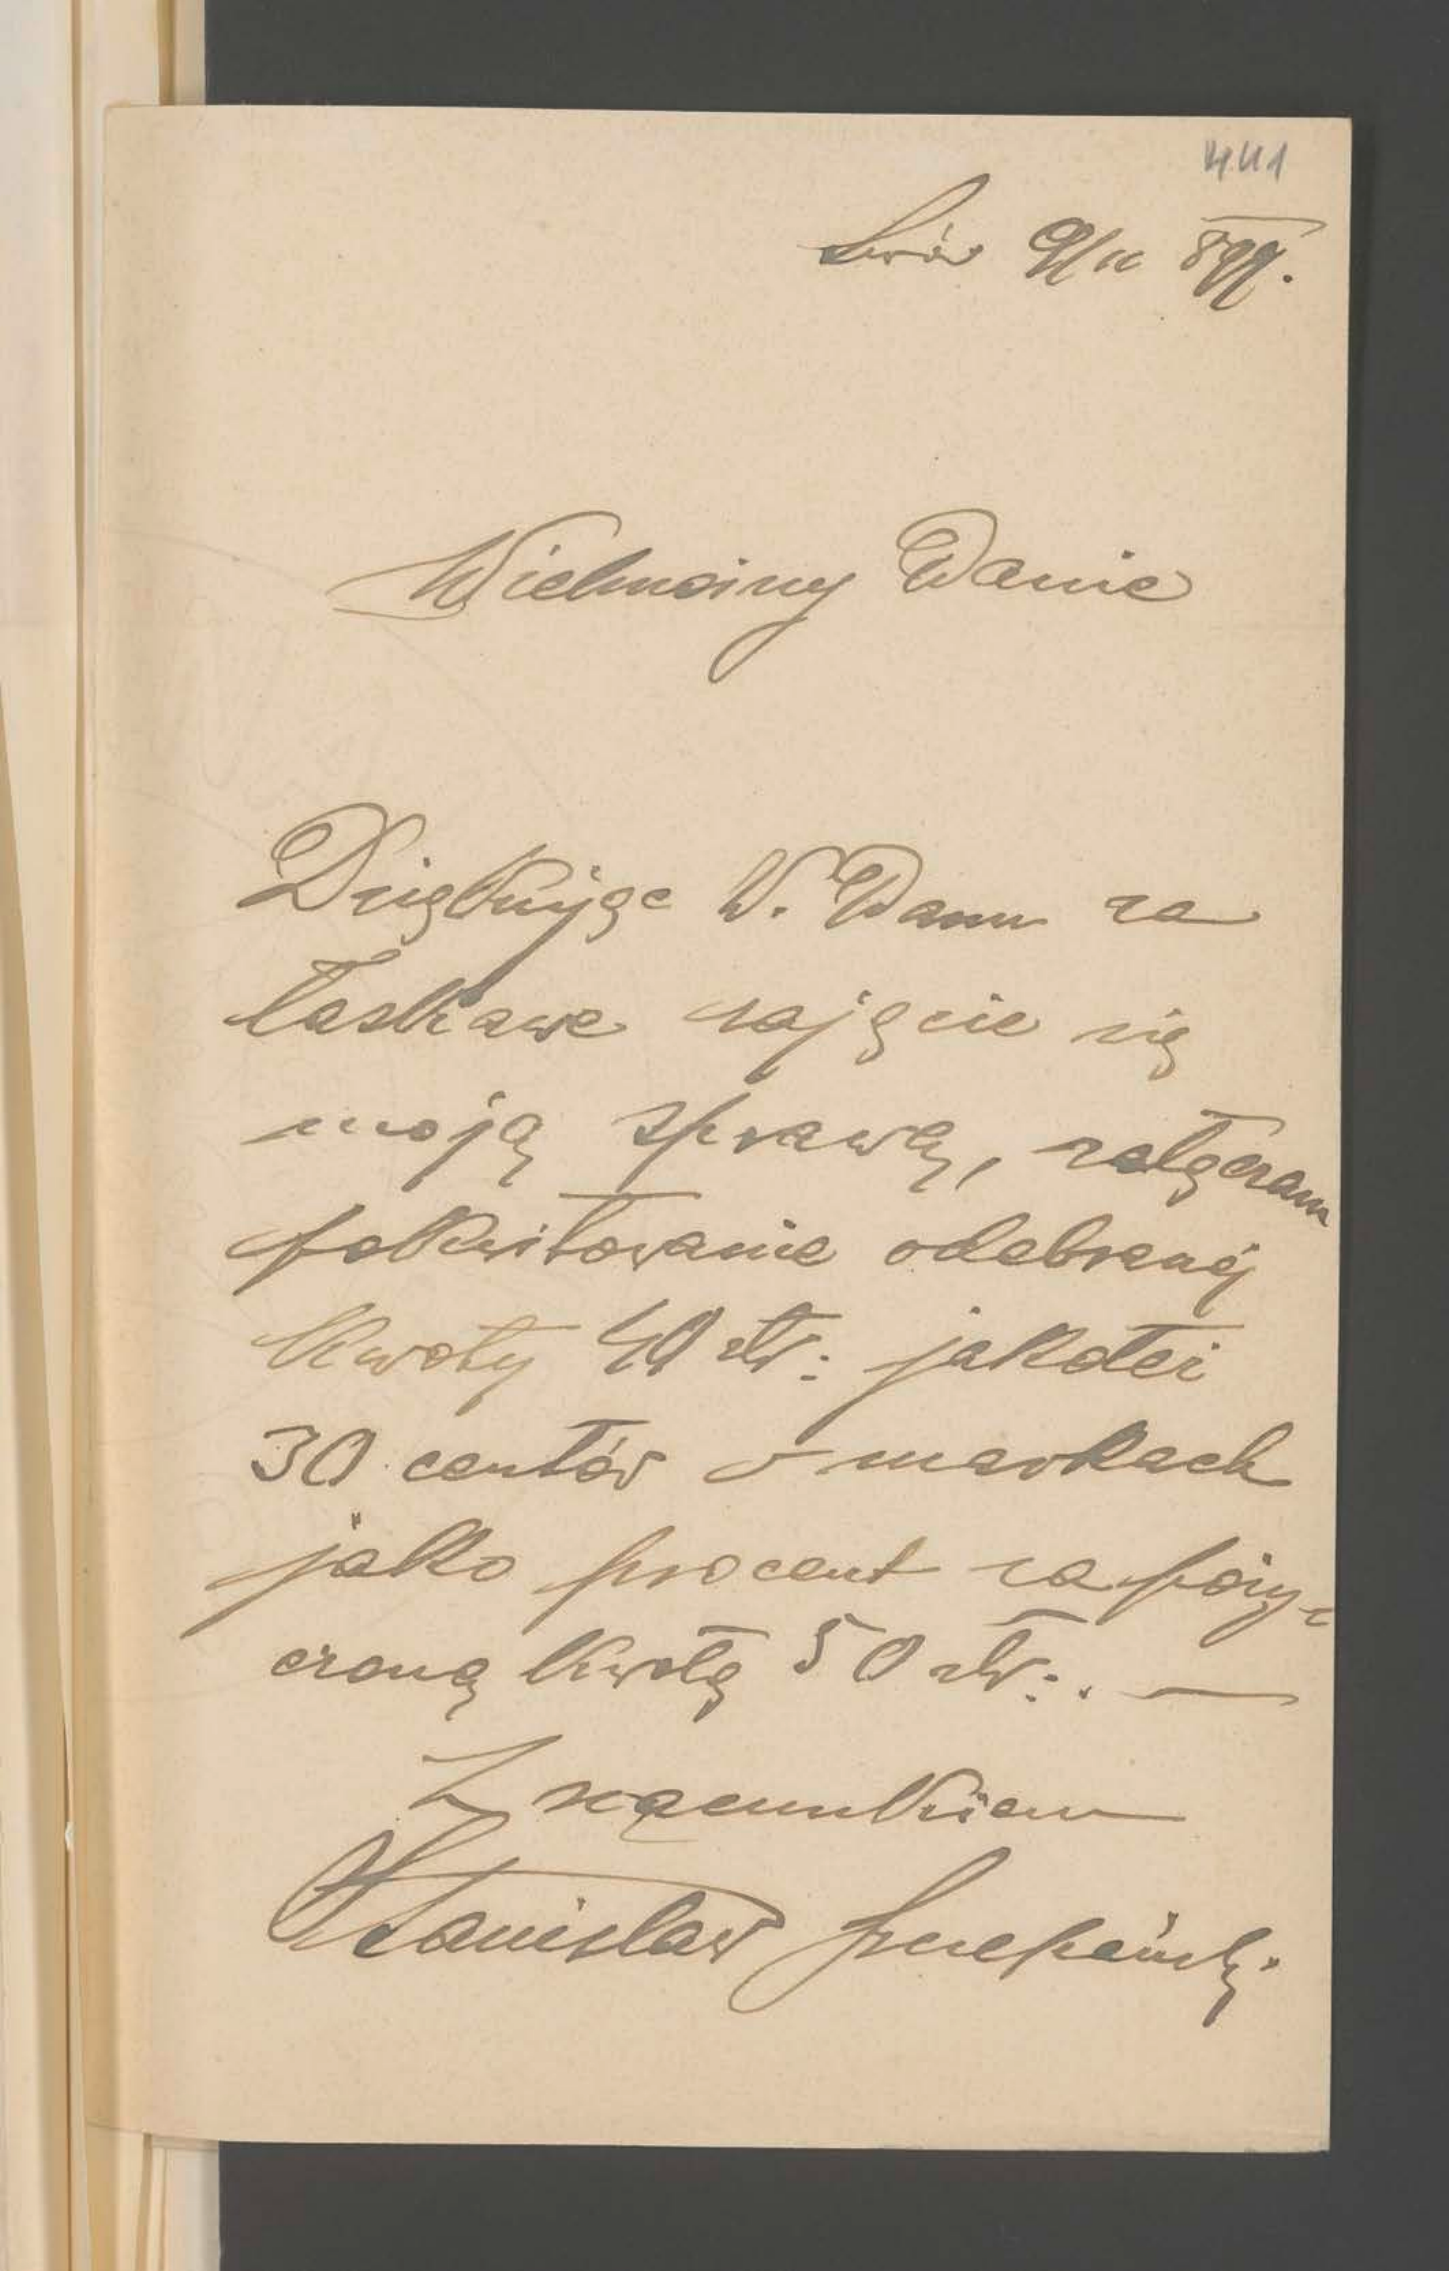 441
Lwów 9/11 899.
Wielmożny Panie
Dziękując W. Panu za
łaskawe zajęcie się
moją sprawą, załączam
pokwitowanie odebranej
kwoty 40 złr: jakoteż
30 centów w markach
jako procent za poży-
czoną kwotę 50 złr:. —
Z szacunkiem
Stanisław Szczepański